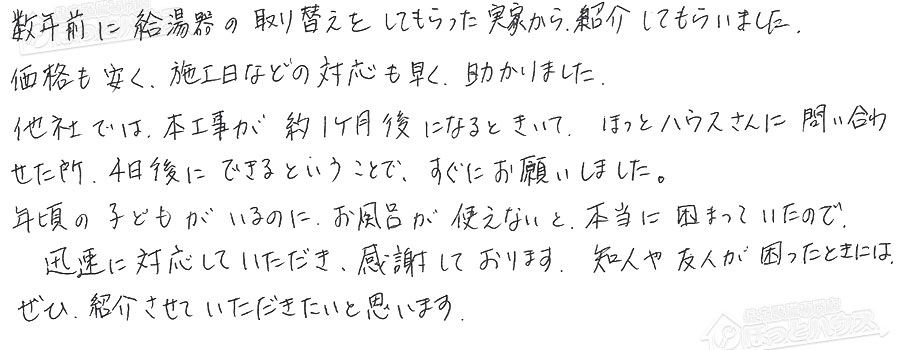 数年前に給湯器の取り替えをしてもらった実家から、紹介してもらいました.
価格も安く、施工日などの対応も早く、助かりました.
他社では、本工事が約1ケ月後になるときいて、ほっとハウスさんに問い合わ
せた所、4日後にできるということで、すぐにお願いしました。
年頃の子どもがいるのに、お風呂が使えないと、本当に困まっていたので、
迅速に対応していただき、感謝しております. 知人や友人が困ったときには、
ぜひ、紹介させていただきたいと思います.
住宅設備専門店
ほっとハウス